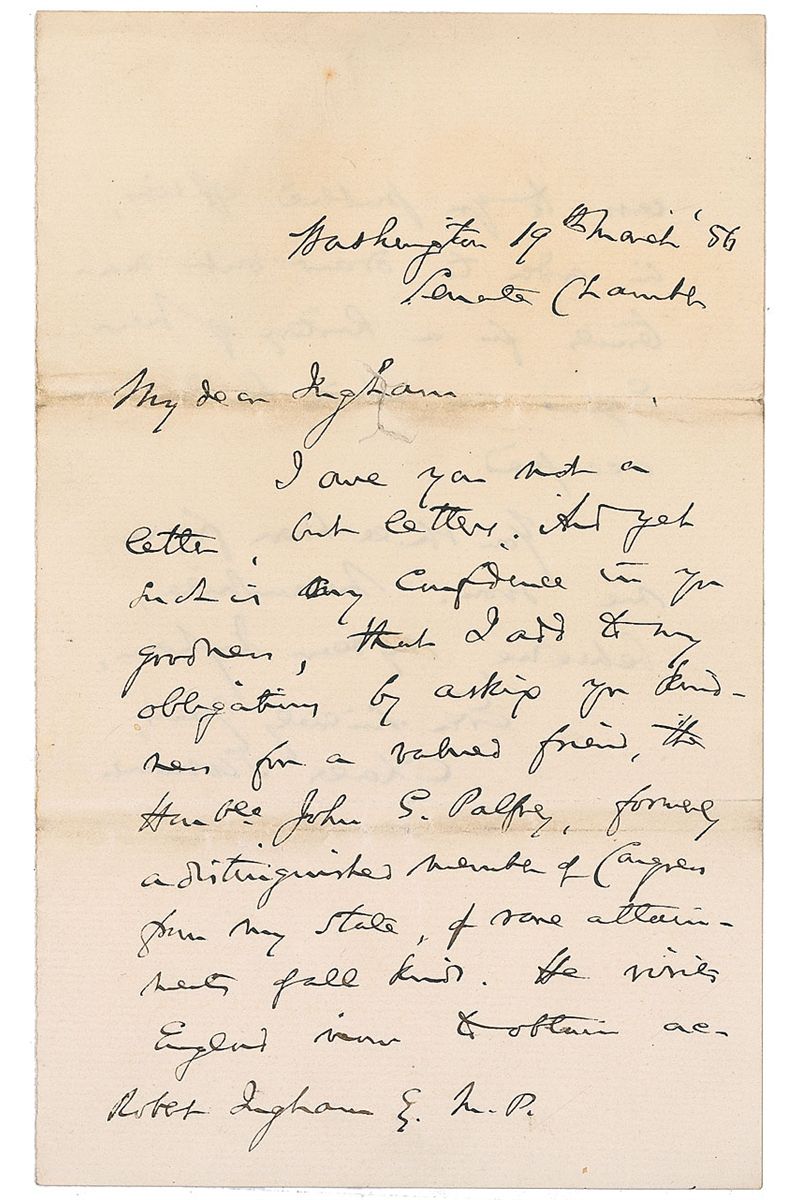 Washington 19th March '56
Senate Chamber
My dear Ingham
I owe you not a
letter, but letters. And yet
such is my confidence in yr
goodness, that I add to my
obligations by asking yr kind-
ness for a valued friend, the
Honble John G. Palfrey, formerly
a distinguished member of Congress
from my state, of rare attain-
ments of all kinds. He visits
England now to obtain ac-
Robert Ingham Esq. M.P.